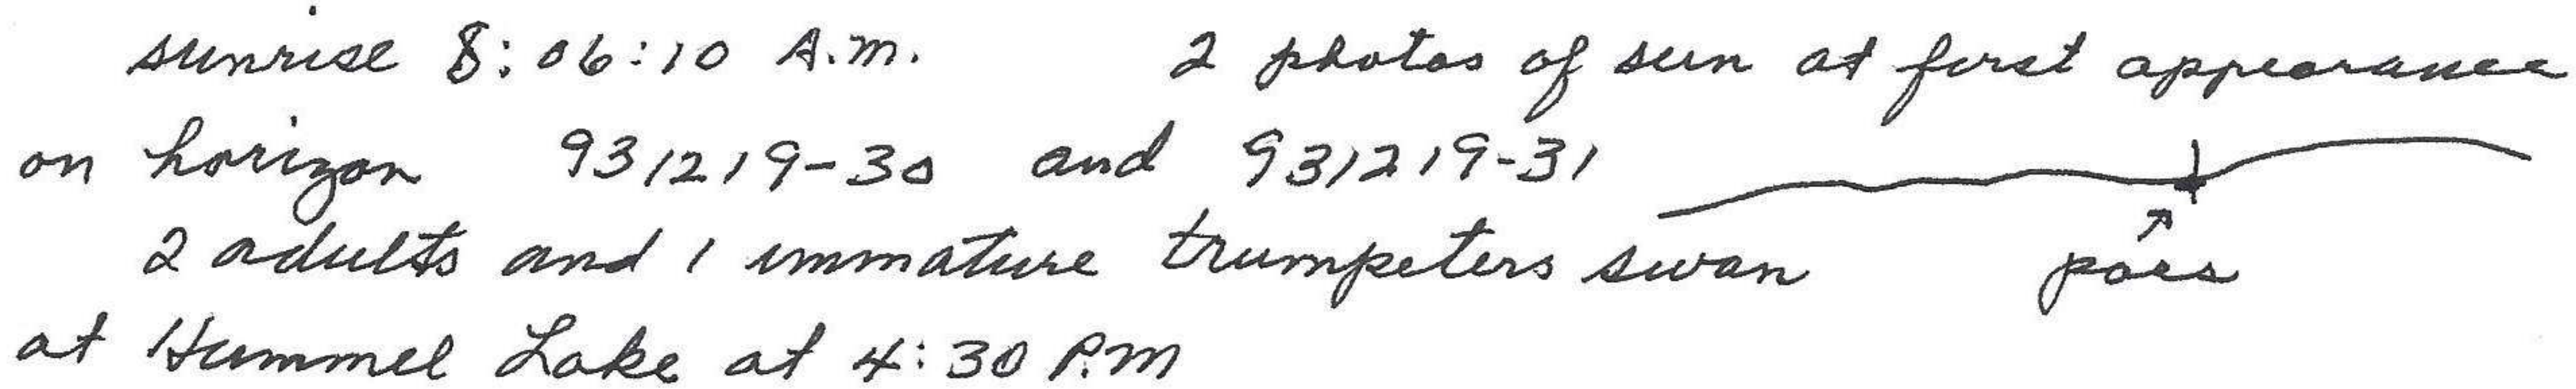 sunrise 8:06:10 A.M. 2 photos of sun at first appearance
on horizon 931219-30 and 931219-31
2 adults and 1 immature trumpeters swan
at Hummel Lake at 4:30 P.M